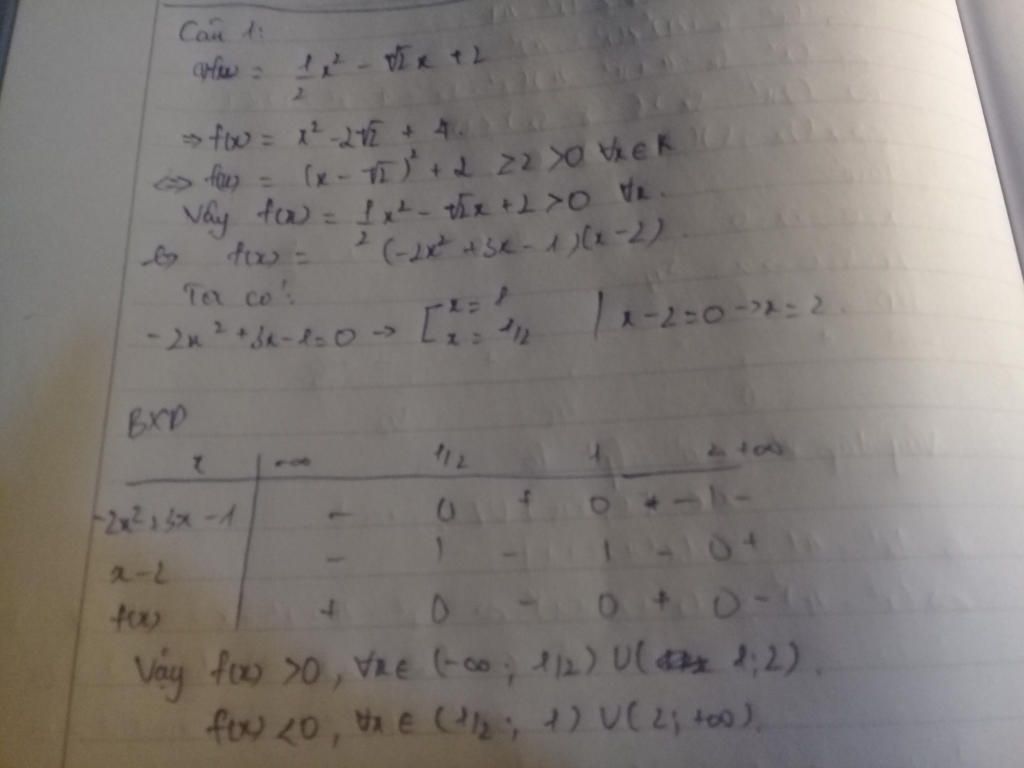 Câu 1:
f(x) = 1/2 x² - √2x + 2
⇒ f(x) = x² - 2√2 + 4.
⇔ f(x) = (x - √2)² + 2 ≥ 2 > 0 ∀x ∈ R
Vậy f(x) = 1/2 x² - √2x + 2 > 0 ∀x.
f(x) = (-2x² + 3x - 1)(x - 2)
Ta có:
-2x² + 3x - 1 = 0 → [x = 1 x = 1/2 | x - 2 = 0 → x = 2.
BXD
x | -∞ 1/2 1 2 +∞
-2x² + 3x - 1 | - 0 + 0 - | -
x - 2 | - | - | - 0 +
f(x) | + 0 - 0 + 0 -
Vậy f(x) > 0, ∀x ∈ (-∞; 1/2) ∪ (1; 2).
f(x) < 0, ∀x ∈ (1/2; 1) ∪ (2; +∞).